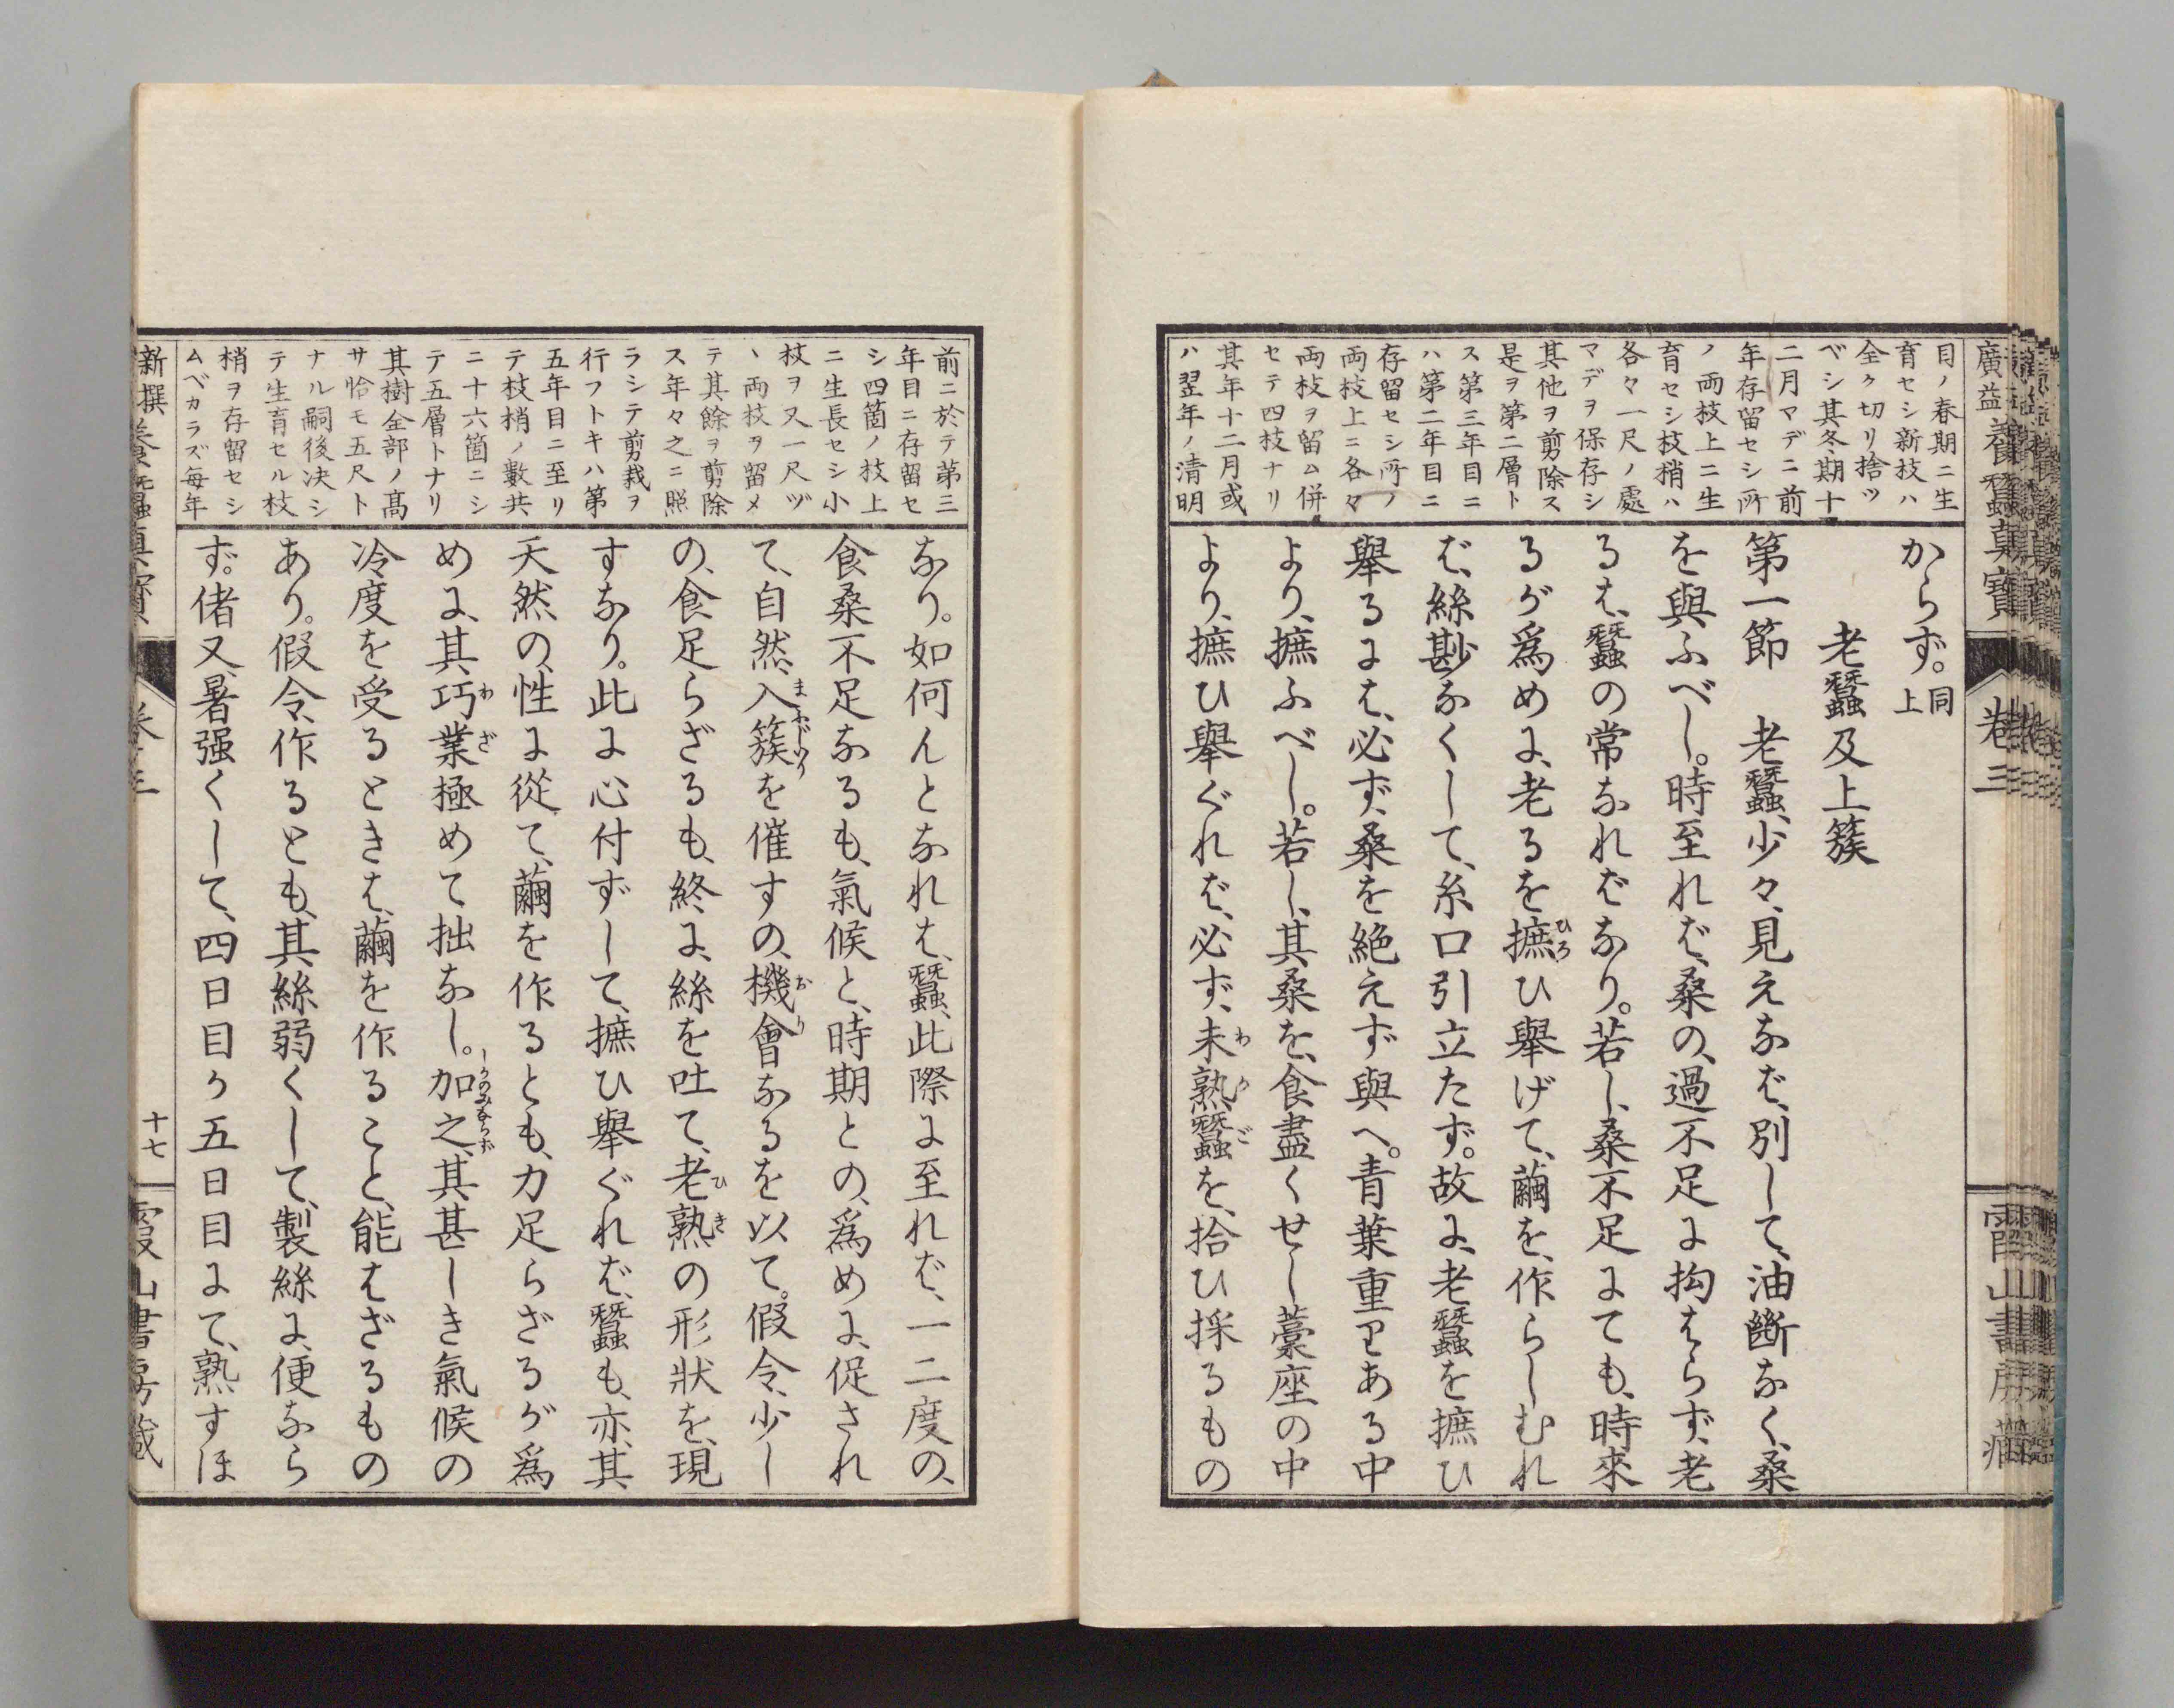 廣益養蠶真寶
卷三
目ノ春期ニ生
育セシ新枝ハ
全ク切リ捨ツ
ベシ其冬期十
二月マデニ前
年存留セシ所
ノ両枝上ニ生
育セシ枝梢ハ
各々一尺ノ處
マデヲ保存シ
其他ヲ剪除ス
是ヲ第二層ト
ス第三年目ニ
ハ第二年目ニ
存留セシ所ノ
両枝上ニ各々
両枝ヲ留ム併
セテ四枝ナリ
其年十二月或
ハ翌年ノ清明
からず。同上
老蠶及上簇
第一節 老蠶、少々、見えなば、別して、油斷なく、桑
を與ふべし。時至れば、桑の、過不足に拘はらず、老
るは、蠶の常なればなり。若し、桑不足にても、時來
るが爲めに、老るを摭ひ舉げて、繭を、作らしむれ
ば、絲尠なくして、糸口引立たず。故に、老蠶を摭ひ
舉るには、必ず、桑を絶えず與へ。青葉重りある中
より、摭ふべし。若し、其桑を、食盡くせし藁座の中
より、摭ひ舉ぐれば、必ず、未熟蠶を、拾ひ採るもの
前ニ於テ第三
年目ニ存留セ
シ四箇ノ枝上
ニ生長セシ小
枝ヲ又一尺ヅ
ヽ両枝ヲ留メ
テ其餘ヲ剪除
ス年々之ニ照
ラシテ剪栽ヲ
行フトキハ第
五年目ニ至リ
テ枝梢ノ數共
ニ十六箇ニシ
テ五層トナリ
其樹全部ノ髙
サ恰モ五尺ト
ナル嗣後决シ
テ生育セル枝
梢ヲ存留セシ
ムベカラズ毎年
なり。如何んとなれは、蠶、此際に至れば、一二度の、
食桑不足なるも、氣候と、時期との、爲めに、促され
て、自然、入簇を催すの、機會なるを以て。假令、少し
の、食足らざるも、終に、絲を吐て、老熟の形狀を、現
すなり。此に心付ずして、摭ひ舉ぐれば、蠶も、亦、其
天然の、性に從て、繭を作るとも、力足らざるが爲
めに、其、巧業極めて拙なし。加之、其甚しき氣候の
冷度を受るときは、繭を作ること、能はざるもの
あり。假令、作るとも、其絲弱くして、製絲に、便なら
ず。偖又、暑强くして、四日目か五日目にて、熟すほ
新撰養蠶真寶
卷三
十七
霞山書房藏